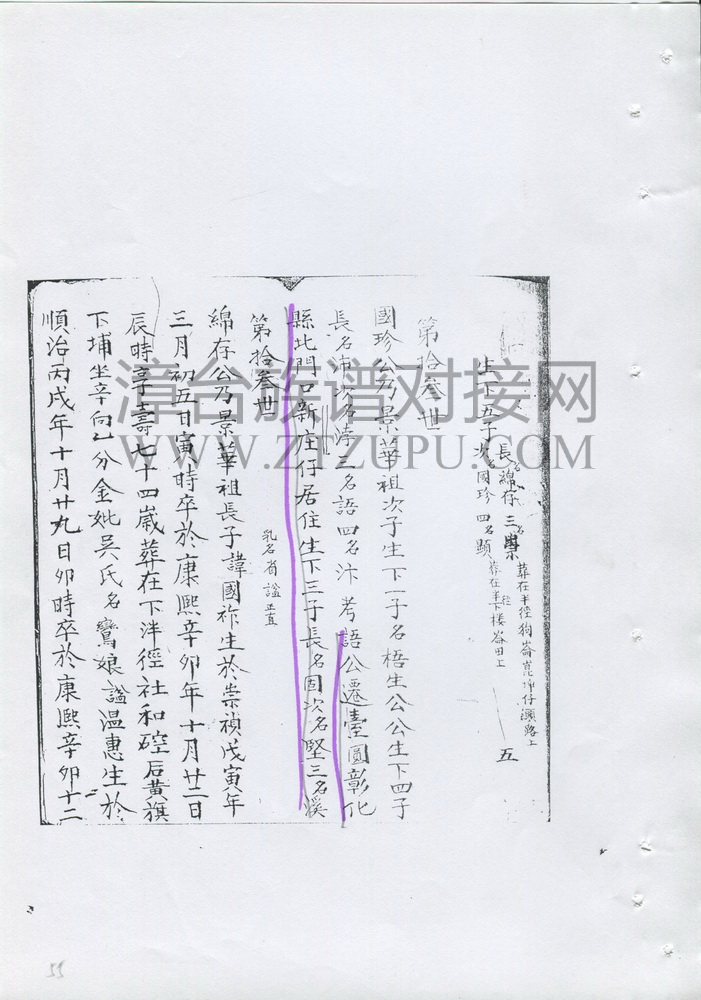 生下五子 長名綿存 次名國珍 三名崇 四名顯 五
葬在半徑狗崙崑埤仔瀨路上
葬在半徑下樓崙田上
第拾叁世
國珍公乃景華祖次子生下一子名梧生公公生下四子
長名沛次名涍三名語四名汴考語公遷臺圓彰化
縣北門口新庄仔居住生下三子長名固次名堅三名溪
第拾叁世
乳名省謚正直
綿存公乃景華祖長子諱國祚生於崇禎戊寅年
三月初五日寅時卒於康熙辛卯年十月廿二日
辰時享壽七十四歲葬在下洋徑社和硿后黃旗
下埔坐辛向乙分金妣吳氏名鸞娘謚温惠生於
順治丙戌年十月廿九日卯時卒於康熙辛卯十二
漳台族谱对接网
WWW.ZTZUPU.COM